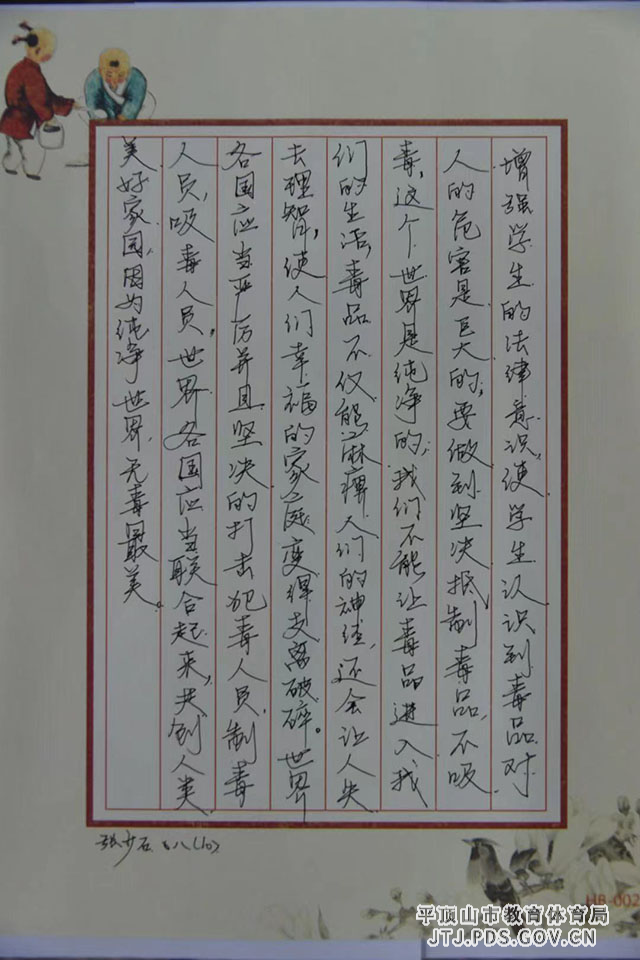 增强学生的法律意识，使学生认识到毒品对
人的危害是巨大的，要做到坚决抵制毒品，不吸
毒，这个世界是纯净的，我们不能让毒品进入我
们的生活，毒品不仅能麻痹人们的神经，还会让人失
去理智，使人们幸福的家庭变得支离破碎。世界
各国应当严厉并且坚决的打击犯毒人员，制毒
人员，吸毒人员，世界各国应当联合起来，共创人类
美好家园，因为纯净世界，无毒最美。
张少石 八(10)
HB-002
平顶山市教育体育局
JTJ.PDS.GOV.CN